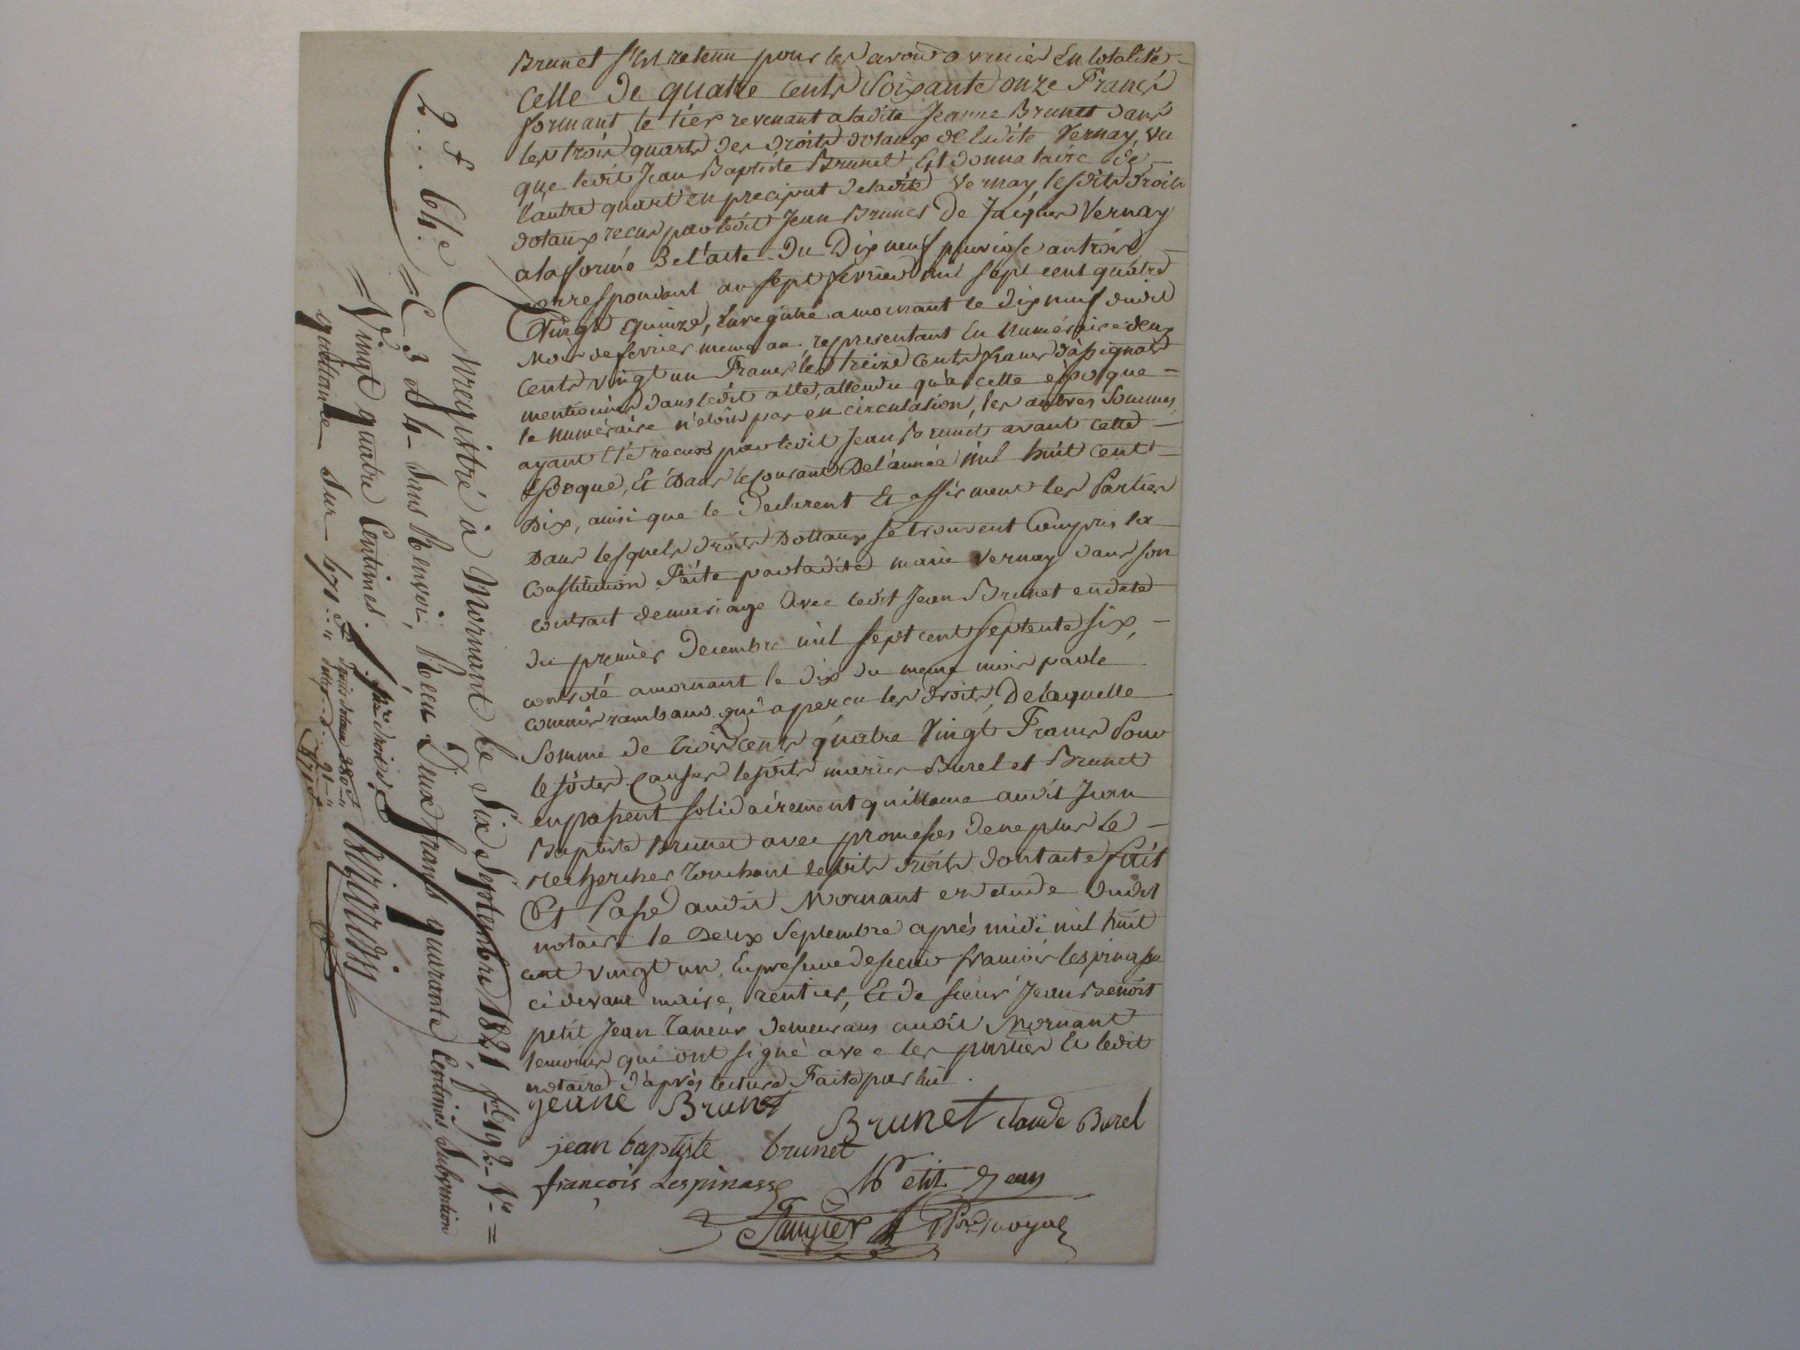 Brunet s'est retenu pour les avoir
celle de quatre cents soixante onze Francs
formant le tiers revenant a ladite Jeanne Brunet dans
les trois quarts des droits dotaux de ladite Vernay, vu
que ledit Jean Baptiste Brunet Est donnataire de
l'autre quart en preciput de ladite Vernay, lesdits droits
dotaux recus par ledit Jean Brunet De Jacques Vernay
a la forme de l'acte du Dix neuf pluviose an trois
correspondant au sept fevrier mil sept cent quatre
Vingt quinze, Enregistré a mornant le dix neuf dudit
mois de fevrier meme an. representant En Numéraire deux
cents vingt un Francs les treize cents francs d'assignats
mentionnés dans ledit acte, attendu qu'a cette epoque
le numéraire n'etoit pas en circulation, les autres Sommes
ayant été recues par ledit Jean Brunet avant cette
Epoque, Et Dans le courant de l'année mil huit cent
Dix, ainsi que le Declarent Et affirment les Parties
Dans lesquels droits Dottaux se trouvent Compris la
Constitution Faite par ladite marie Vernay dans son
contrat de mariage avec ledit Jean Brunet en date
du premier Decembre mil sept cent septente six,
controlé a mornant le dix du meme mois par le
commis rambaud qui a percu les droits, De laquelle
Somme de trois cents quatre Vingt Francs Pour
lesdites Causes lesdits mariés Burel et Brunet
en passent solidairement quittance audit Jean
Baptiste Brunet avec promesses de ne plus le
rechercher touchant lesdits droits dont acte fait
Et Passé audit Mornant en etude dudit
notaire le Deux Septembre après midi mil huit
cent vingt un. En presence de sieur francois Lespinasse
ci devant maire, rentier, Et de sieur Jean Benoit
petit Jean taneur demeurans audit Mornant
temoins qui ont signé avec les parties Et ledit
notaire d'après lecture Faite par lui.
jeane Brunet
Brunet claude Burel
jean baptiste brunet
françois Lespinasse
Petit Jean
Enregistré à Mornant le Six Septembre 1821 f° 192 V° =
2 f 64 c
C 3 et 4 Sans Renvoi, Recu Deux francs quarante Centimes, Subvention
= Vingt quatre Centimes.
quittance sur 471 f